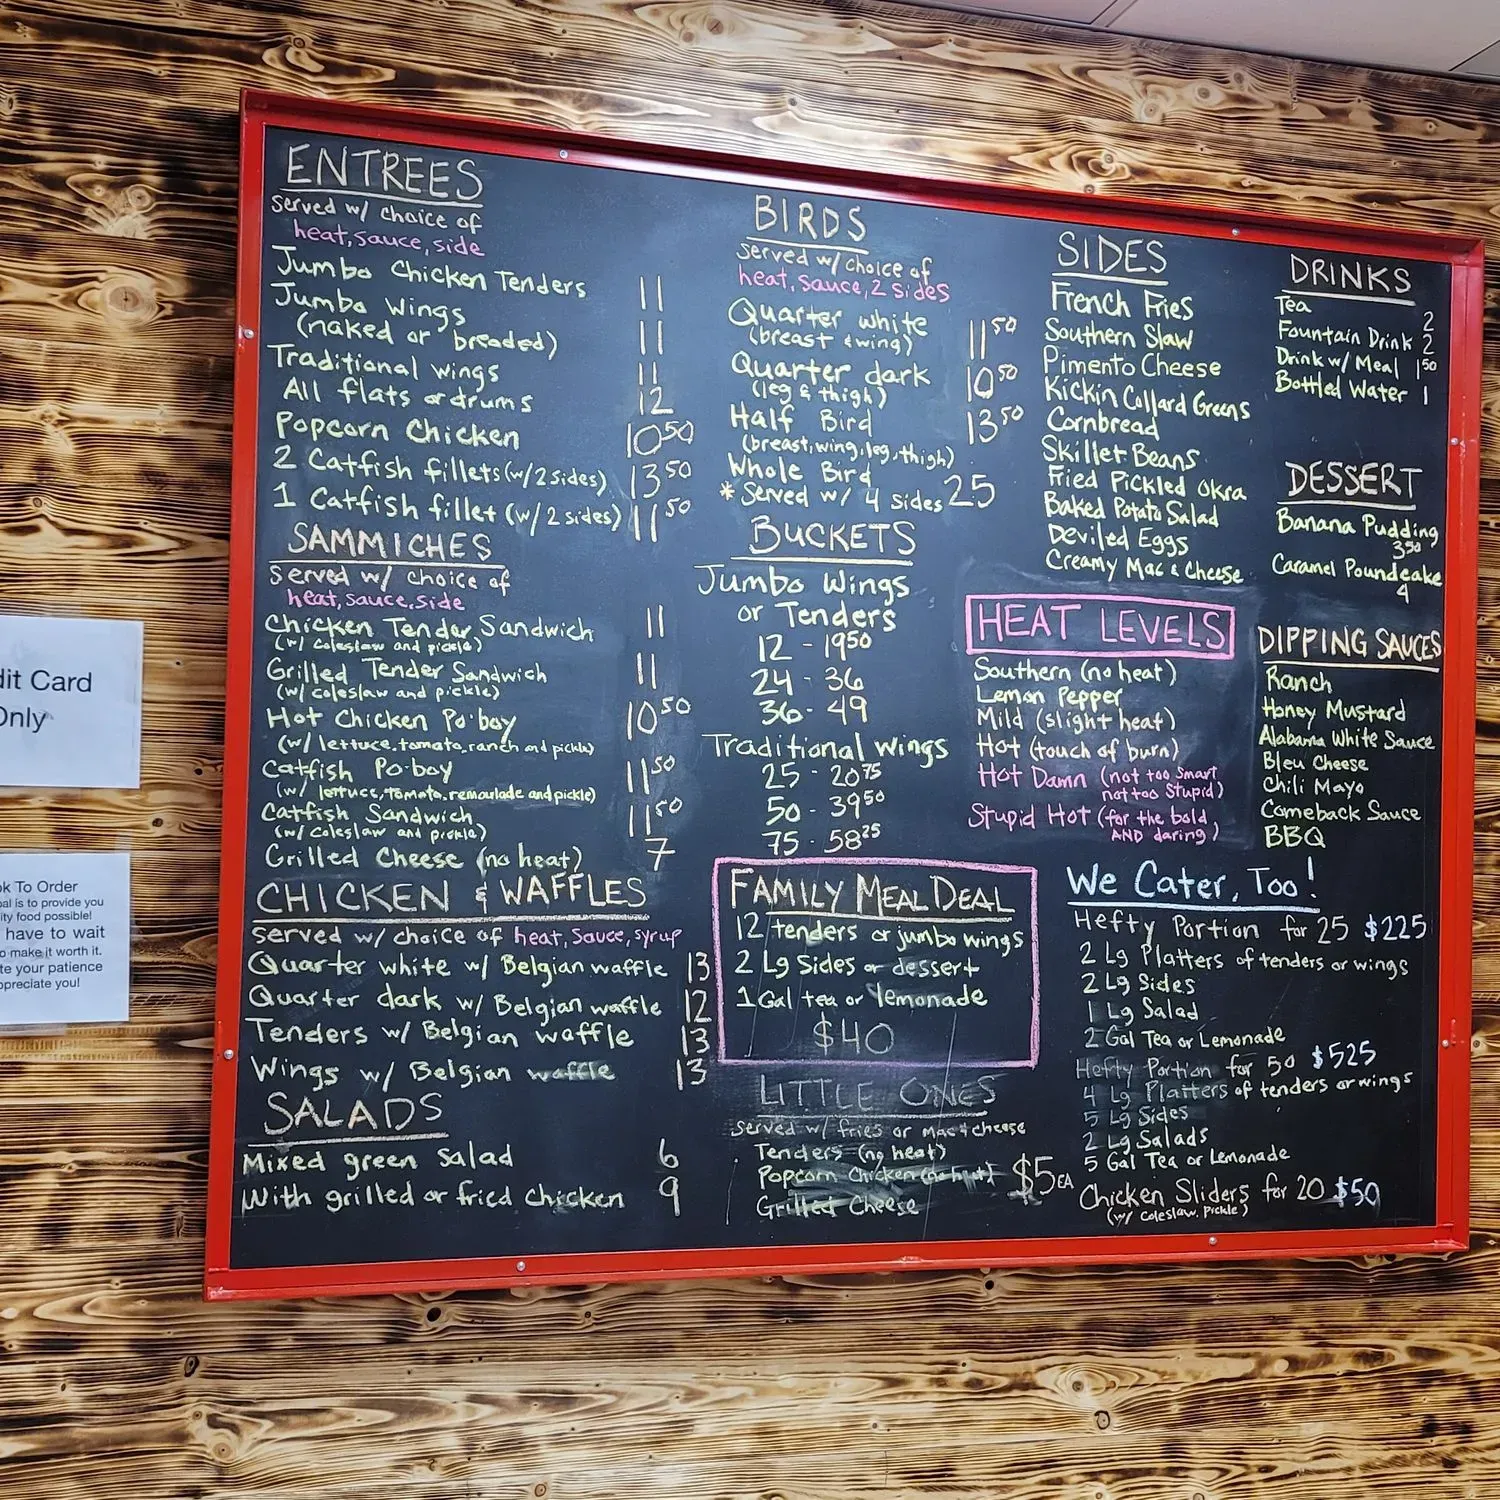 ENTREES
served w/ choice of
heat, sauce, side
Jumbo Chicken Tenders 11
Jumbo Wings
(naked or breaded) 11
Traditional wings 11
All flats or drums 12
Popcorn Chicken 10 50
2 Catfish fillets (w/ 2 sides) 13 50
1 Catfish fillet (w/ 2 sides) 11 50
SAMMICHES
Served w/ choice of
heat, sauce, side
Chicken Tender Sandwich 11
(w/ coleslaw and pickle)
Grilled Tender Sandwich 11
(w/ coleslaw and pickle)
Hot Chicken Po-boy 10 50
(w/ lettuce, tomato, ranch and pickle)
Catfish Po-boy 11 50
(w/ lettuce, tomato, remoulade and pickle)
Catfish Sandwich 11 50
(w/ coleslaw and pickle)
Grilled Cheese (no heat) 7
CHICKEN & WAFFLES
served w/ choice of heat, sauce, syrup
Quarter white w/ Belgian waffle 13
Quarter dark w/ Belgian waffle 12
Tenders w/ Belgian waffle 13
Wings w/ Belgian waffle 13
SALADS
Mixed green salad 6
With grilled or fried chicken 9
BIRDS
served w/ choice of
heat, sauce, 2 sides
Quarter white 11 50
(breast & wing)
Quarter dark 10 50
(leg & thigh)
Half Bird 13 50
(breast, wing, leg, thigh)
Whole Bird
* Served w/ 4 sides 25
BUCKETS
Jumbo Wings
or Tenders
12 - 19 50
24 - 36
36 - 49
Traditional wings
25 - 20 75
50 - 39 50
75 - 58 25
FAMILY MEAL DEAL
12 tenders or jumbo wings
2 Lg Sides or dessert
1 Gal tea or lemonade
$40
LITTLE ONES
served w/ fries or mac & cheese
Tenders (no heat)
Popcorn Chicken (no heat) $5 EA
Grilled Cheese
SIDES
French Fries
Southern Slaw
Pimento Cheese
Kickin Collard Greens
Cornbread
Skillet Beans
Fried Pickled Okra
Baked Potato Salad
Deviled Eggs
Creamy Mac & Cheese
HEAT LEVELS
Southern (no heat)
Lemon Pepper
Mild (slight heat)
Hot (touch of burn)
Hot Damn (not too smart
not too stupid)
Stupid Hot (for the bold
AND daring)
DRINKS
Tea 2
Fountain Drink 2
Drink w/ Meal 1 50
Bottled Water 1
DESSERT
Banana Pudding
3 50
Caramel Poundcake
4
DIPPING SAUCES
Ranch
Honey Mustard
Alabama White Sauce
Bleu Cheese
Chili Mayo
Comeback Sauce
BBQ
We Cater, Too!
Hefty Portion for 25 $225
2 Lg Platters of tenders or wings
2 Lg Sides
1 Lg Salad
2 Gal Tea or Lemonade
Hefty Portion for 50 $525
4 Lg Platters of tenders or wings
5 Lg Sides
2 Lg Salads
5 Gal Tea or Lemonade
Chicken Sliders for 20 $50
(w/ coleslaw, pickle)
dit Card
Only
ok To Order
al is to provide you
ity food possible!
have to wait
o make it worth it.
te your patience
preciate you!